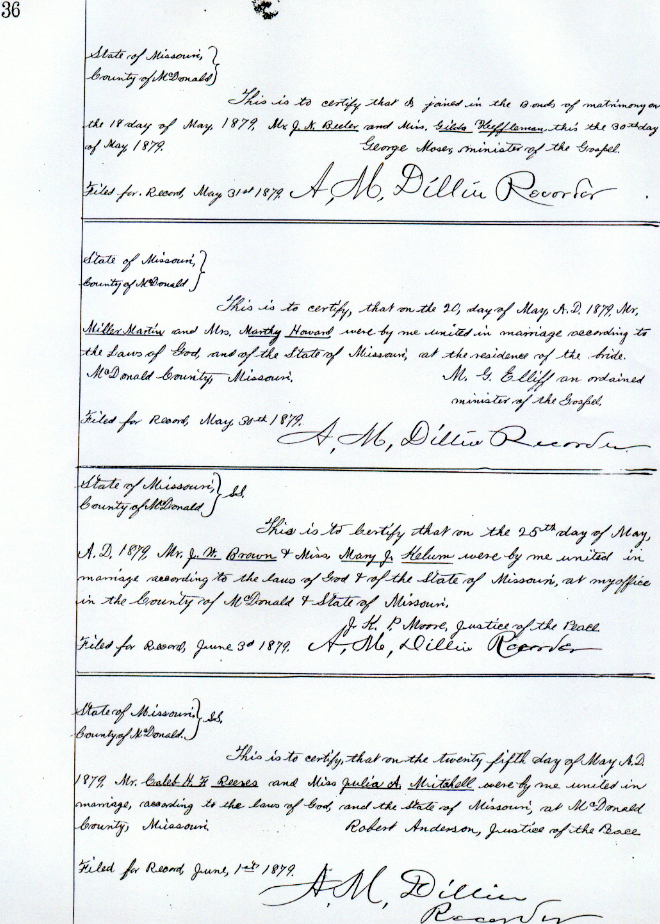 36
State of Missouri,
County of McDonald
This is to certify that I joined in the Bonds of matrimony on
the 18 day of May, 1879, Mr. J. N. Beeler and Miss. Gilda Heffleman, this the 30th day
of May, 1879. George Moser, minister of the Gospel.
Filed for Record, May 31st 1879. A, M, Dillin Recorder
State of Missouri,
County of McDonald
This is to certify, that on the 20, day of May, A.D. 1879, Mr,
Miller Martin and Mrs. Marthy Howard were by me united in marriage according to
the Laws of God, and of the State of Missouri, at the residence of the bride.
McDonald County, Missouri. M. G. Elliff an ordained
minister of the Gospel.
Filed for Record, May, 30th 1879.
A, M, Dillin Recorder
State of Missouri, SS,
County of McDonald
This is to Certify that on the 25th day of May,
A. D. 1879, Mr. J. W. Brown & Miss, Mary J, Helum were by me united in
marriage according to the laws of God & of the State of Missouri, at my office
in the County of McDonald & State of Missouri,
J. K. P. Moore, Justice of the Peace
Filed for Record, June 3d 1879. A, M, Dillin Recorder
State of Missouri SS,
County of McDonald.
This is to certify, that on the twenty fifth day of May A.D.
1879, Mr. Caleb H. F. Reeves and Miss Julia A. Mitchell were by me united in
marriage, according to the laws of God, and the State of Missouri, at McDonald
County, Missouri. Robert Anderson, Justice of the Peace
Filed for Record, June, 1st 1879.
A, M, Dillin
Recorder